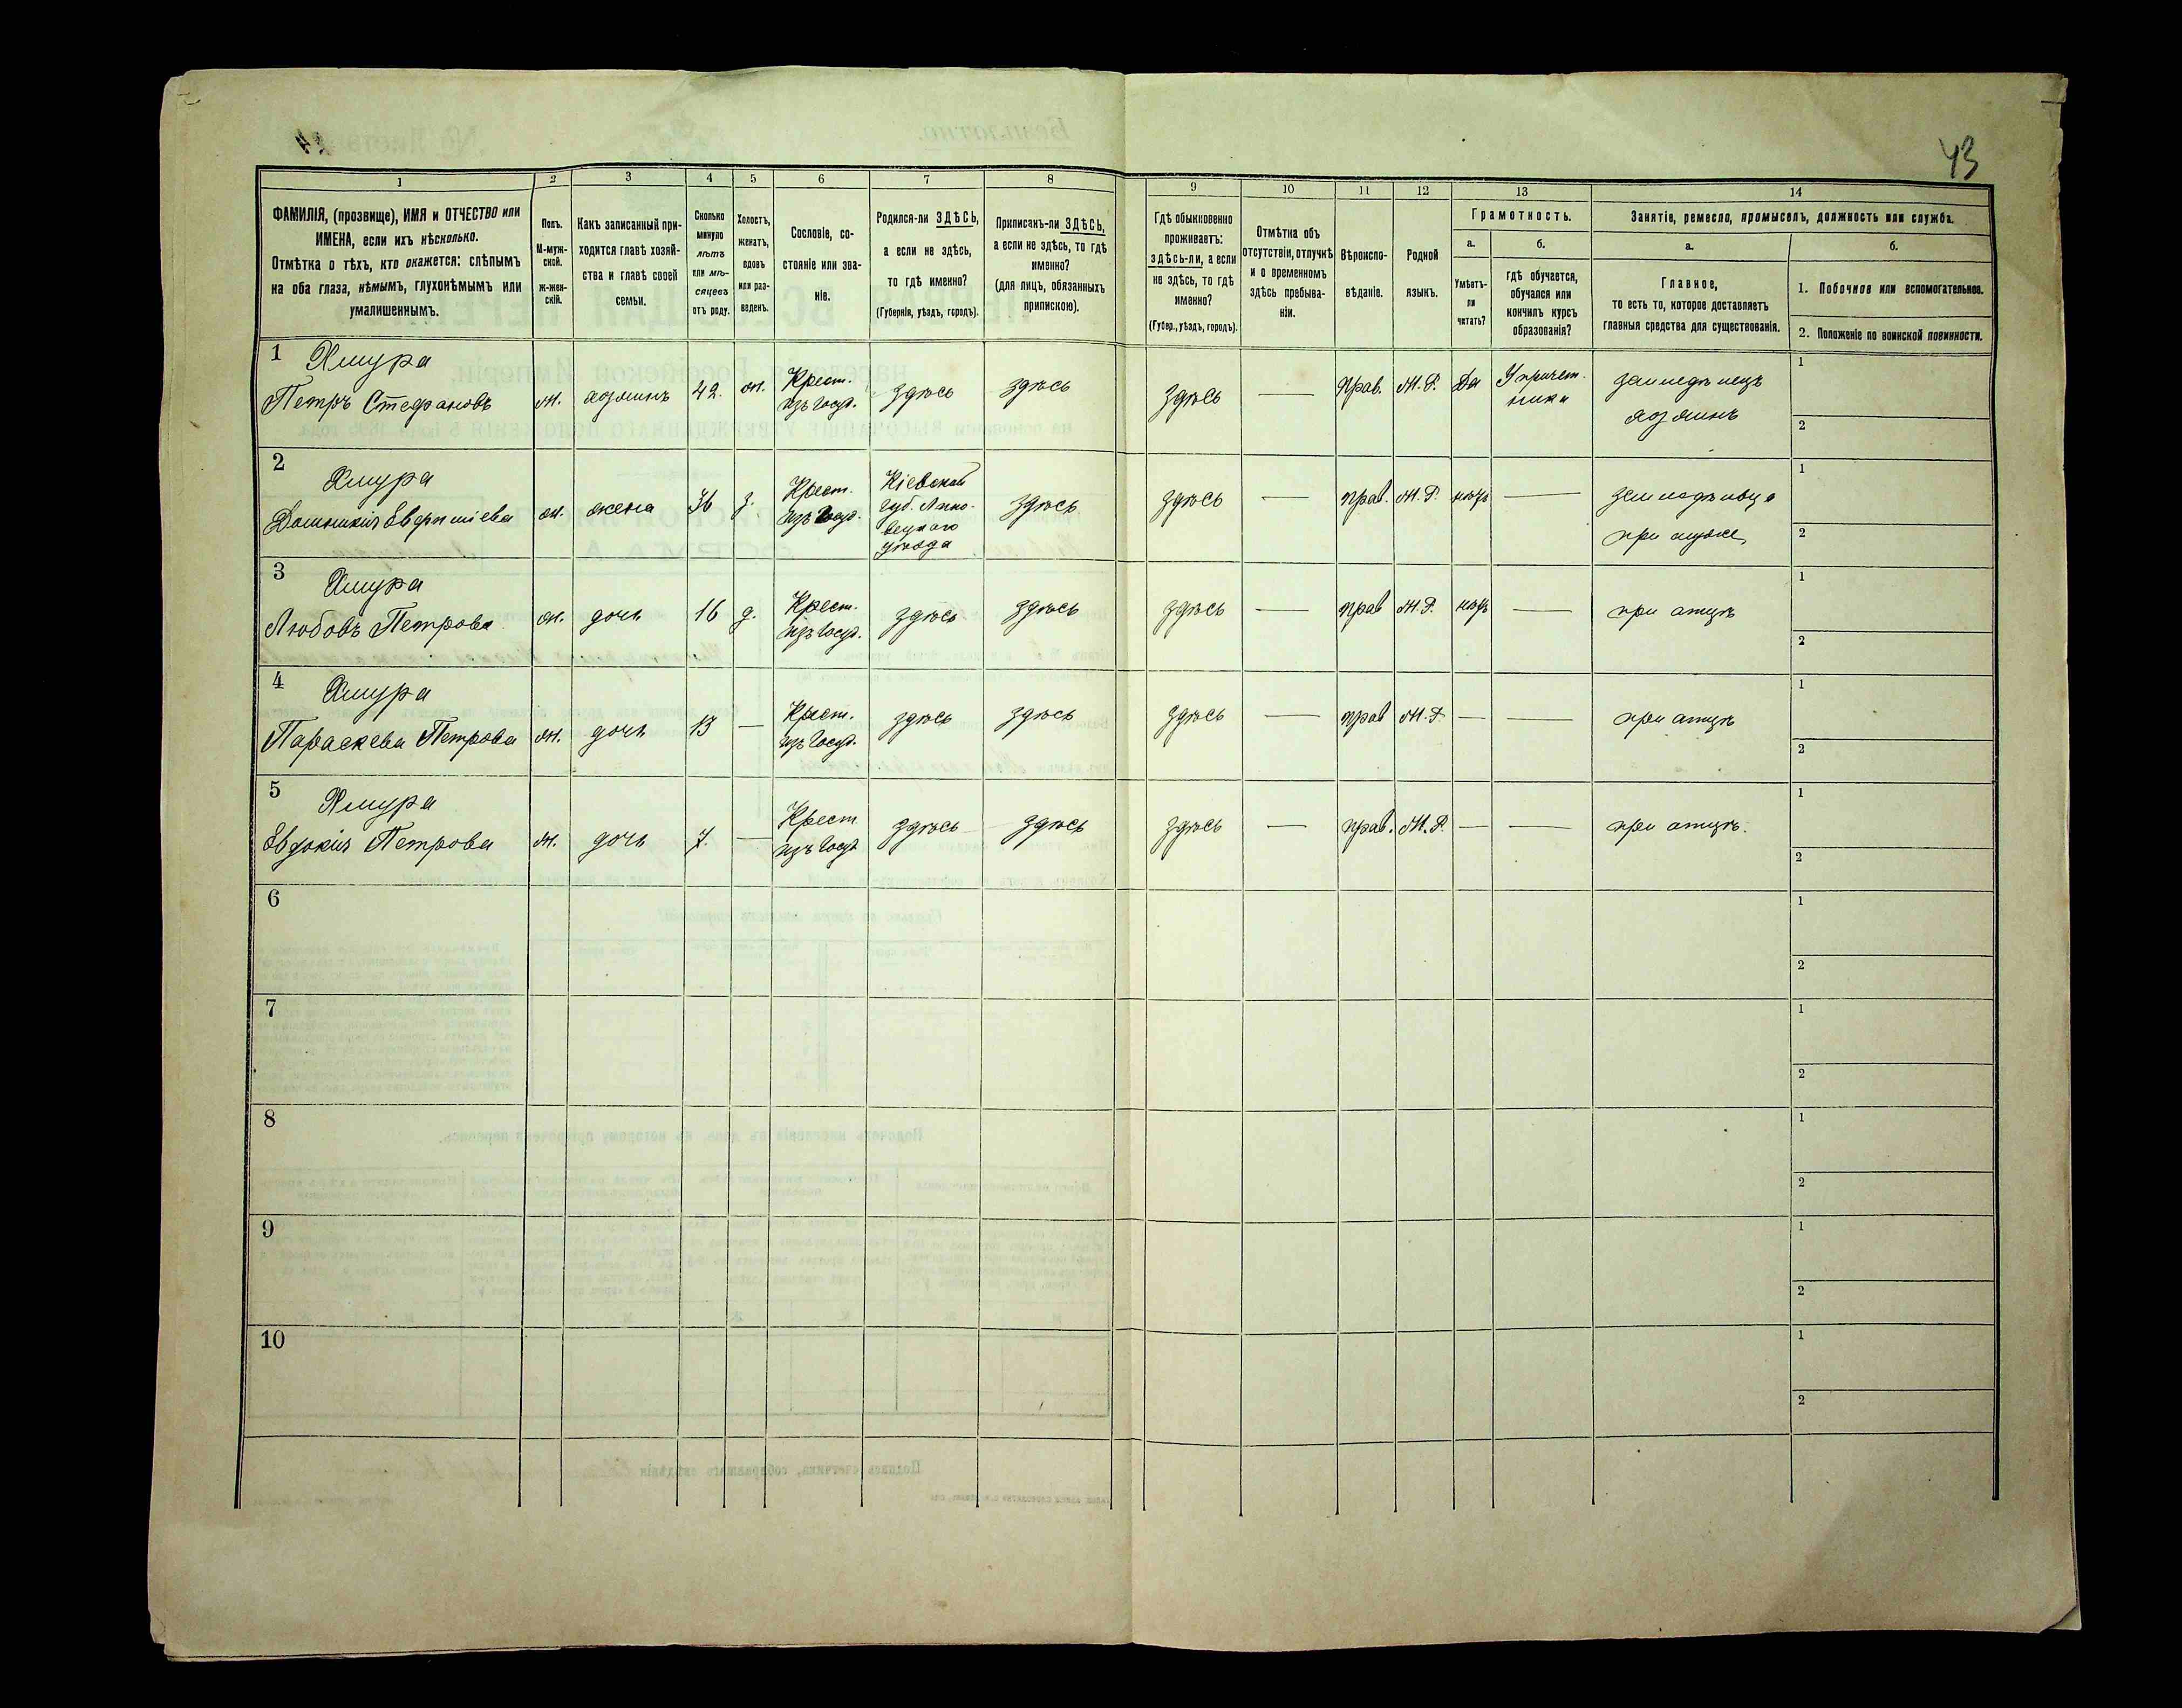 43
1
2
3
4
5
6
7
8
9
10
11
12
13
14
ФАМИЛІЯ, (прозвище), ИМЯ и ОТЧЕСТВО или
ИМЕНА, если ихъ нѣсколько.
Отмѣтка о тѣхъ, кто окажется: слѣпымъ
на оба глаза, нѣмымъ, глухонѣмымъ или
умалишеннымъ.
Полъ.
М-муж-
ской.
ж-жен-
скій.
Какъ записанный при-
ходится главѣ хозяй-
ства и главѣ своей
семьи.
Сколько
минуло
лѣтъ
или мѣ-
сяцевъ
отъ роду.
Холостъ,
женатъ,
вдовъ
или раз-
веденъ.
Сословіе, со-
стояніе или зва-
ніе.
Родился-ли ЗДѢСЬ,
а если не здѣсь,
то гдѣ именно?
(Губернія, уѣздъ, городъ).
Приписанъ-ли ЗДѢСЬ,
а если не здѣсь, то гдѣ
именно?
(для лицъ, обязанныхъ
припискою).
Гдѣ обыкновенно
проживаетъ:
здѣсь-ли, а если
не здѣсь, то гдѣ
именно?
(Губер., уѣздъ, городъ).
Отмѣтка объ
отсутствіи, отлучкѣ
и о временномъ
здѣсь пребыва-
ніи.
Вѣроиспо-
вѣданіе.
Родной
языкъ.
Грамотность.
а.
Умѣетъ-
ли
читать?
б.
гдѣ обучается,
обучался или
кончилъ курсъ
образованія?
Занятіе, ремесло, промыселъ, должность или служба.
а.
Главное,
то есть то, которое доставляетъ
главныя средства для существованія.
б.
1. Побочное или вспомогательное.
2. Положеніе по воинской повинности.
1 Хмура
Петръ Стефановъ м. хозяинъ 42. ж. Крест. изъ госуд. здѣсь здѣсь здѣсь — прав. М.Р. Да У причет-
ника земледѣлецъ
хозяинъ
1
2
2 Хмура
Домникія Евфиміева ж. жена 36 з. Крест. изъ госуд. Кіевской
губ. Липо-
вецкаго
уѣзда здѣсь здѣсь — прав. М.Р. нѣтъ — земледѣлица
при мужѣ
1
2
3 Хмура
Любовь Петрова ж. дочь 16 д. Крест. изъ госуд. здѣсь здѣсь здѣсь — прав М.Р. нѣтъ — при отцѣ
1
2
4 Хмура
Параскева Петрова ж. дочь 13 — Крест. изъ госуд. здѣсь здѣсь здѣсь — прав М.Р. — — при отцѣ
1
2
5 Хмура
Евдокія Петрова ж. дочь 7. — Крест изъ госуд здѣсь здѣсь здѣсь — прав. М.Р. — — при отцѣ.
1
2
6
1
2
7
1
2
8
1
2
9
1
2
10
1
2